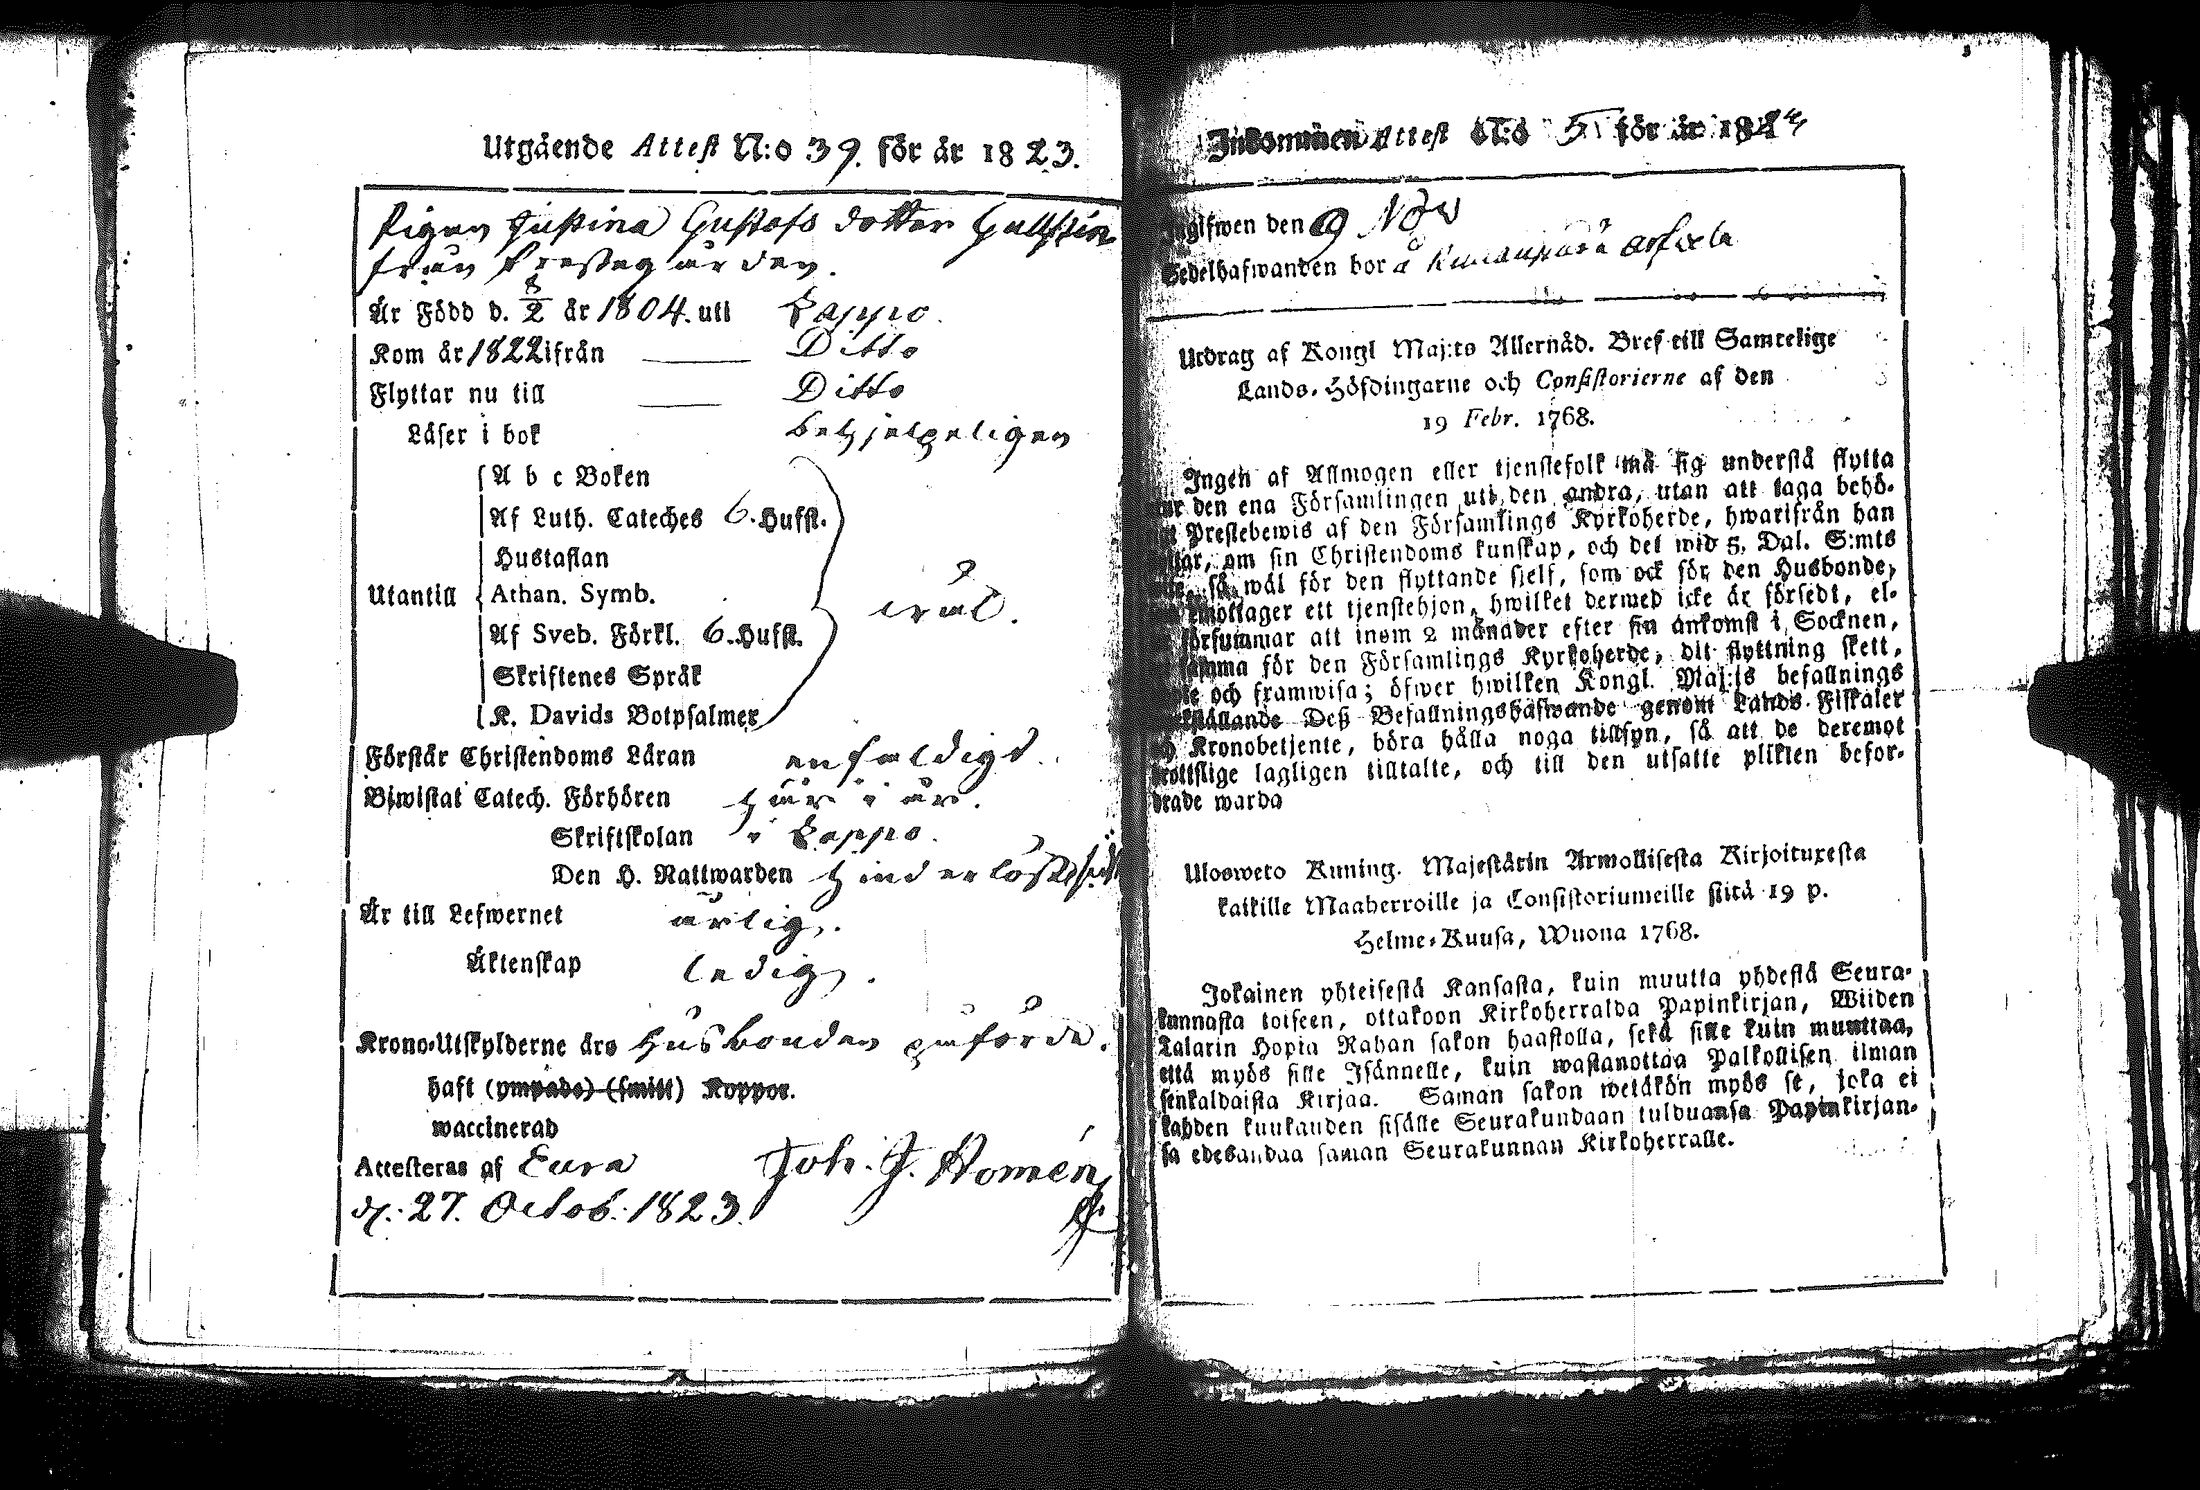 Utgående Attest N:o 39. för år 1823.
Pigan Justina Gustafs dotter
från Prestegården.
År Född d. 8/2 år 1804. uti Lappo.
Kom år 1822 ifrån Ditto
Flyttar nu till Ditto
Läser i bok behjelpeligen
A b c Boken
Af Luth. Cateches 6. Hufst.
Hustaflan
Utantill Athan. Symb.
Af Sveb. Förkl. 6. Hufst.
Skriftenes Språk
K. Davids Botpsalmer
Förstår Christendoms Läran enfaldigt.
Biwistat Catech. Förhören här i år.
Skriftskolan i Lappo.
Den H. Nattwarden
Är till Lefwernet ärlig.
Äktenskap ledig.
Krono-Utskylderne äro Husbonden påförde.
haft (ympade) (smitt) Koppor.
waccinerad
Attesteras af Eura Joh. J. Homén
d. 27. Octob. 1823.
Inkommen Attest N:o 5 för år 182
Ingifwen den 9 Nov
Sedelhafwanden bor å
Utdrag af Kongl Maj:ts Allernåd. Bref till Samtelige
Lands-Höfdingarne och Consistorierne af den
19 Febr. 1768.
Ingen af Allmogen eller tjenstefolk må sig understå flytta
ur den ena Församlingen uti den andra, utan att taga behö-
Prestebewis af den Församlings Kyrkoherde, hwarifrån han
om sin Christendoms kunskap, och det wid 5. Dal. S:mts
så wäl för den flyttande sjelf, som ock för den Husbonde,
emottager ett tjenstehjon, hwilket dermed icke är försedt, el-
försummar att inom 2 månader efter sin ankomst i Socknen,
samma för den Församlings Kyrkoherde, dit flyttning skett,
och framwisa; öfwer hwilken Kongl. Maj:ts befallnings
Deß Befallningshafwande genom Lands-Fiskaler
och Kronobetjente, böra hålla noga tillsyn, så att de deremot
brottslige lagligen tilltalte, och till den utsatte plikten befor-
drade warda
Ulosweto Kuning. Majestätin Armollisesta Kirjoituxesta
kaikille Maaherroille ja Consistoriumeille siitä 19 p.
Helme-Kuusa, Wuona 1768.
Jokainen yhteisestä Kansasta, kuin muutta yhdestä Seura-
kunnasta toiseen, ottakoon Kirkoherralda Papinkirjan, Wiiden
Talarin Hopia Rahan sakon haastolla, sekä sille kuin muuttaa,
että myös sille Isännelle, kuin wastanottaa Palkollisen ilman
senkaldaista Kirjaa. Saman sakon wetäkön myös se, joka ei
kahden kuukauden sisälle Seurakundaan tulduansa Papinkirjan-
sa edesandaa saman Seurakunnan Kirkoherralle.